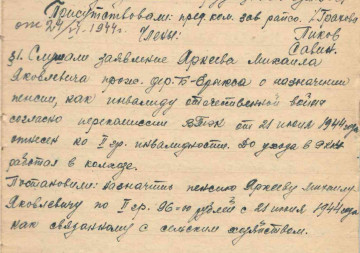 Присутствовали: пред. ком. зав райсо. Граково
от 24/VI-1944г. Члены: Пиков
Савин.
§1. Слушали заявление Аркеева Михаила
Яковлевича прож. дер. Б- о назначении
пенсии, как инвалиду отечественной войны
согласно перекомиссии ВТЭК от 21 июня 1944 года
отнесен ко II гр. инвалидности. До ухода в
работал в колхозе.
Постановили: назначить пенсию Аркееву Михаилу
Яковлевичу по II гр. 96-ю рублей с 21 июня 1944 года
как связанному с сельским хозяйством.